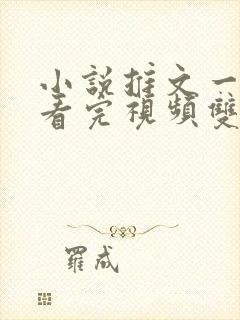 小説推文一
看完視頻雙
羅成